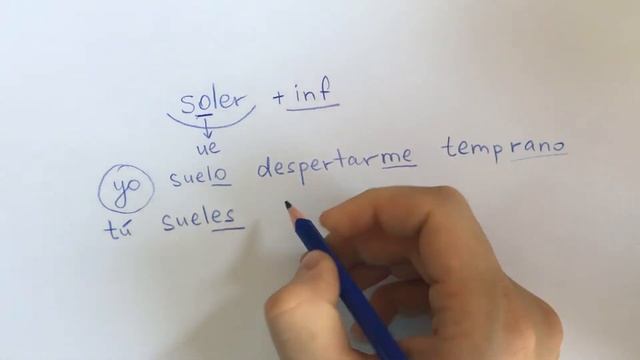 soler + inf
ue
yo suelo despertarme temprano
tú sueles